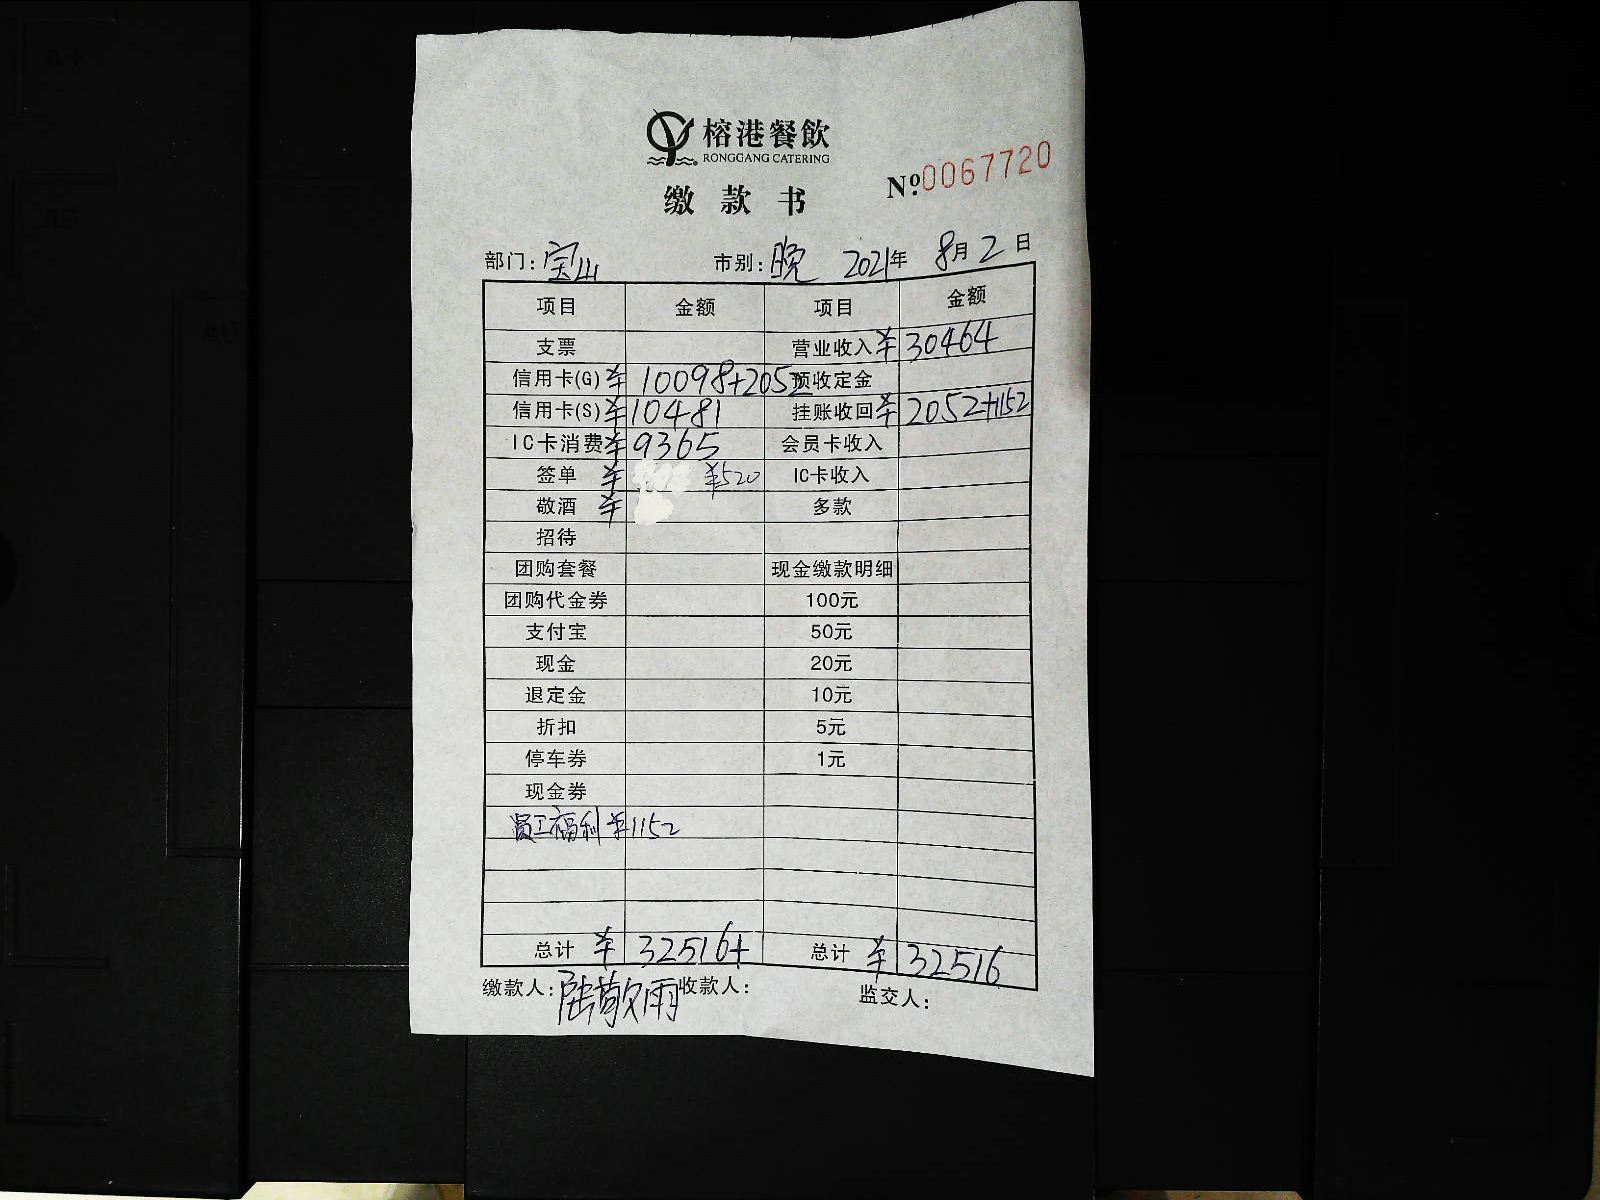 榕港餐飲
RONGGANG CATERING
缴款书
Nº.0067720
部门:宝山 市别:晚 2021年 8月2日
项目 金额 项目 金额
支票 营业收入 ¥30464
信用卡(G) ¥10098+2052 预收定金
信用卡(S) ¥10481 挂账收回 ¥2052+1152
IC卡消费 ¥9365 会员卡收入
签单 ¥ ¥520 IC卡收入
敬酒 ¥ 多款
招待
团购套餐 现金缴款明细
团购代金券 100元
支付宝 50元
现金 20元
退定金 10元
折扣 5元
停车券 1元
现金券
员工福利 ¥1152
总计 ¥32516+ 总计 ¥32516
缴款人:陆敬雨 收款人: 监交人: